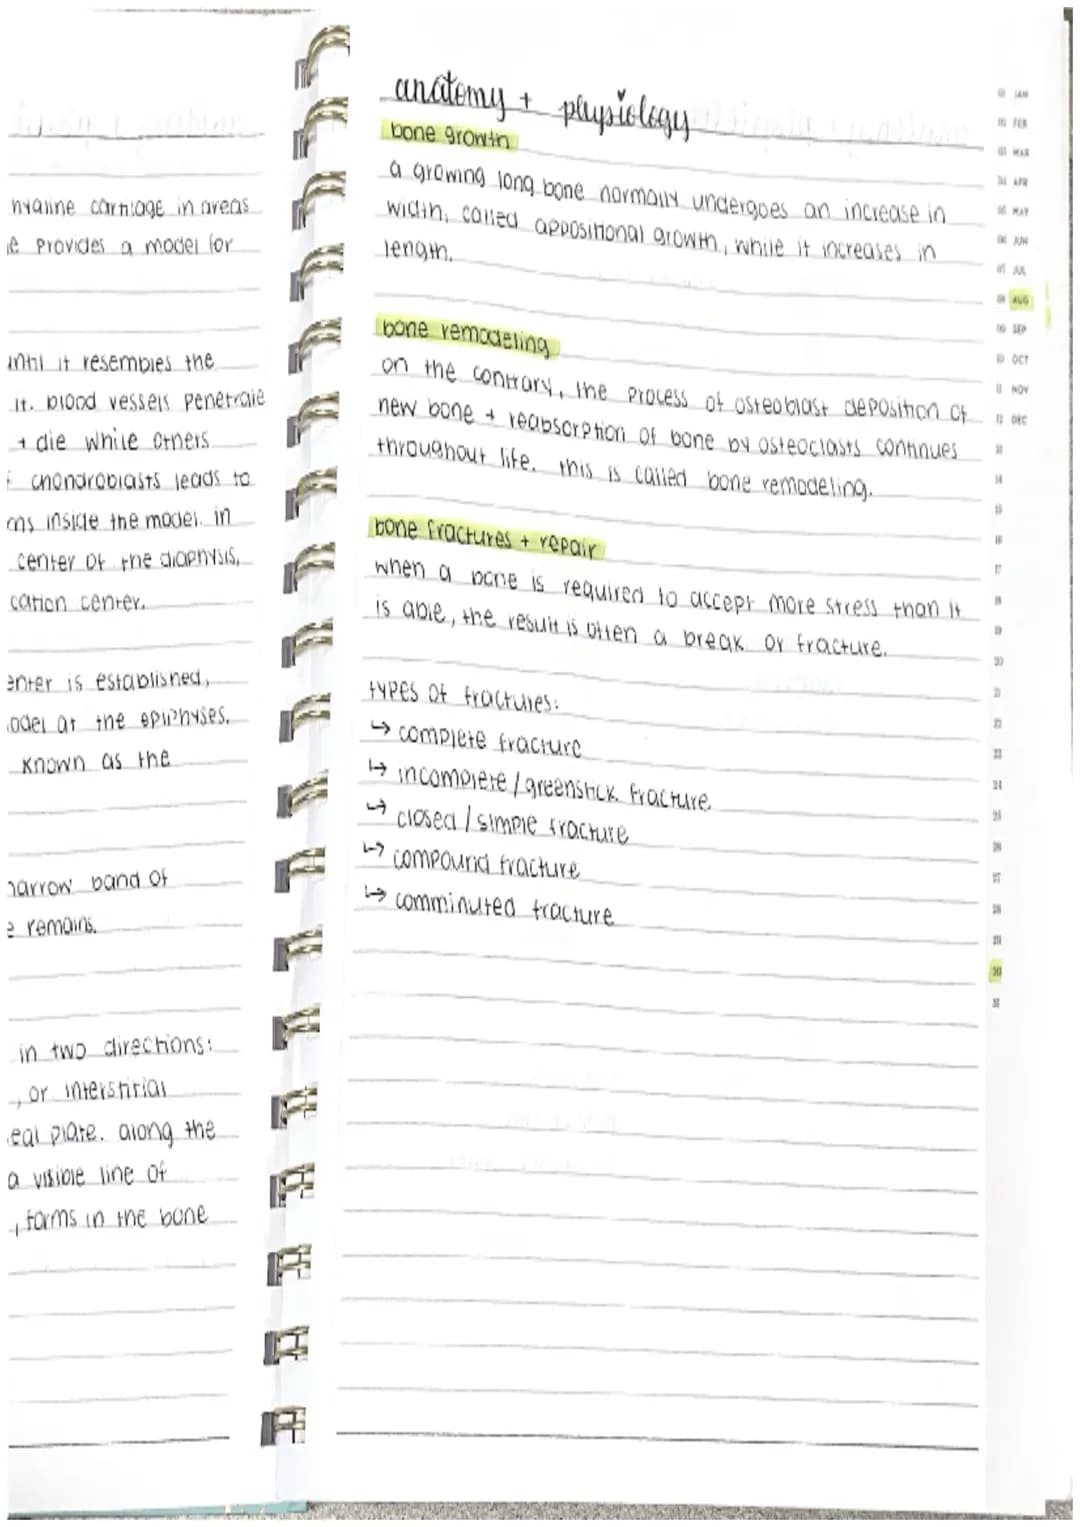 hyaline cartilage in areas
provides a model for
until it resembles the
it. blood vessels penetrate
+ die while others
chondroblasts leads to
inside the model. in
center of the diaphysis,
center.
is established,
at the epiphyses.
known as the
narrow band of
remains.
in two directions:
, or interstitial
plate. along the
a visible line of
, forms in the bone
anatomy + physiology
bone growth
a growing long bone normally undergoes an increase in
width, called appositional growth, while it increases in
length.
bone remodeling
on the contrary, the process of osteoblast deposition of
new bone + reabsorption of bone by osteoclasts continues
throughout life. this is called bone remodeling.
bone fractures + repair
when a bone is required to accept more stress than it
is able, the result is often a break or fracture.
types of fractures:
↳ complete fracture
↳ incomplete / greenstick fracture
↳ closed / simple fracture
↳ compound fracture
↳ comminuted fracture
01 JAN
02 FEB
03 MAR
04 APR
05 MAY
06 JUN
07 JUL
08 AUG
09 SEP
10 OCT
11 NOV
12 DEC
13
14
15
16
17
18
19
20
21
22
23
24
25
26
27
28
29
30
31